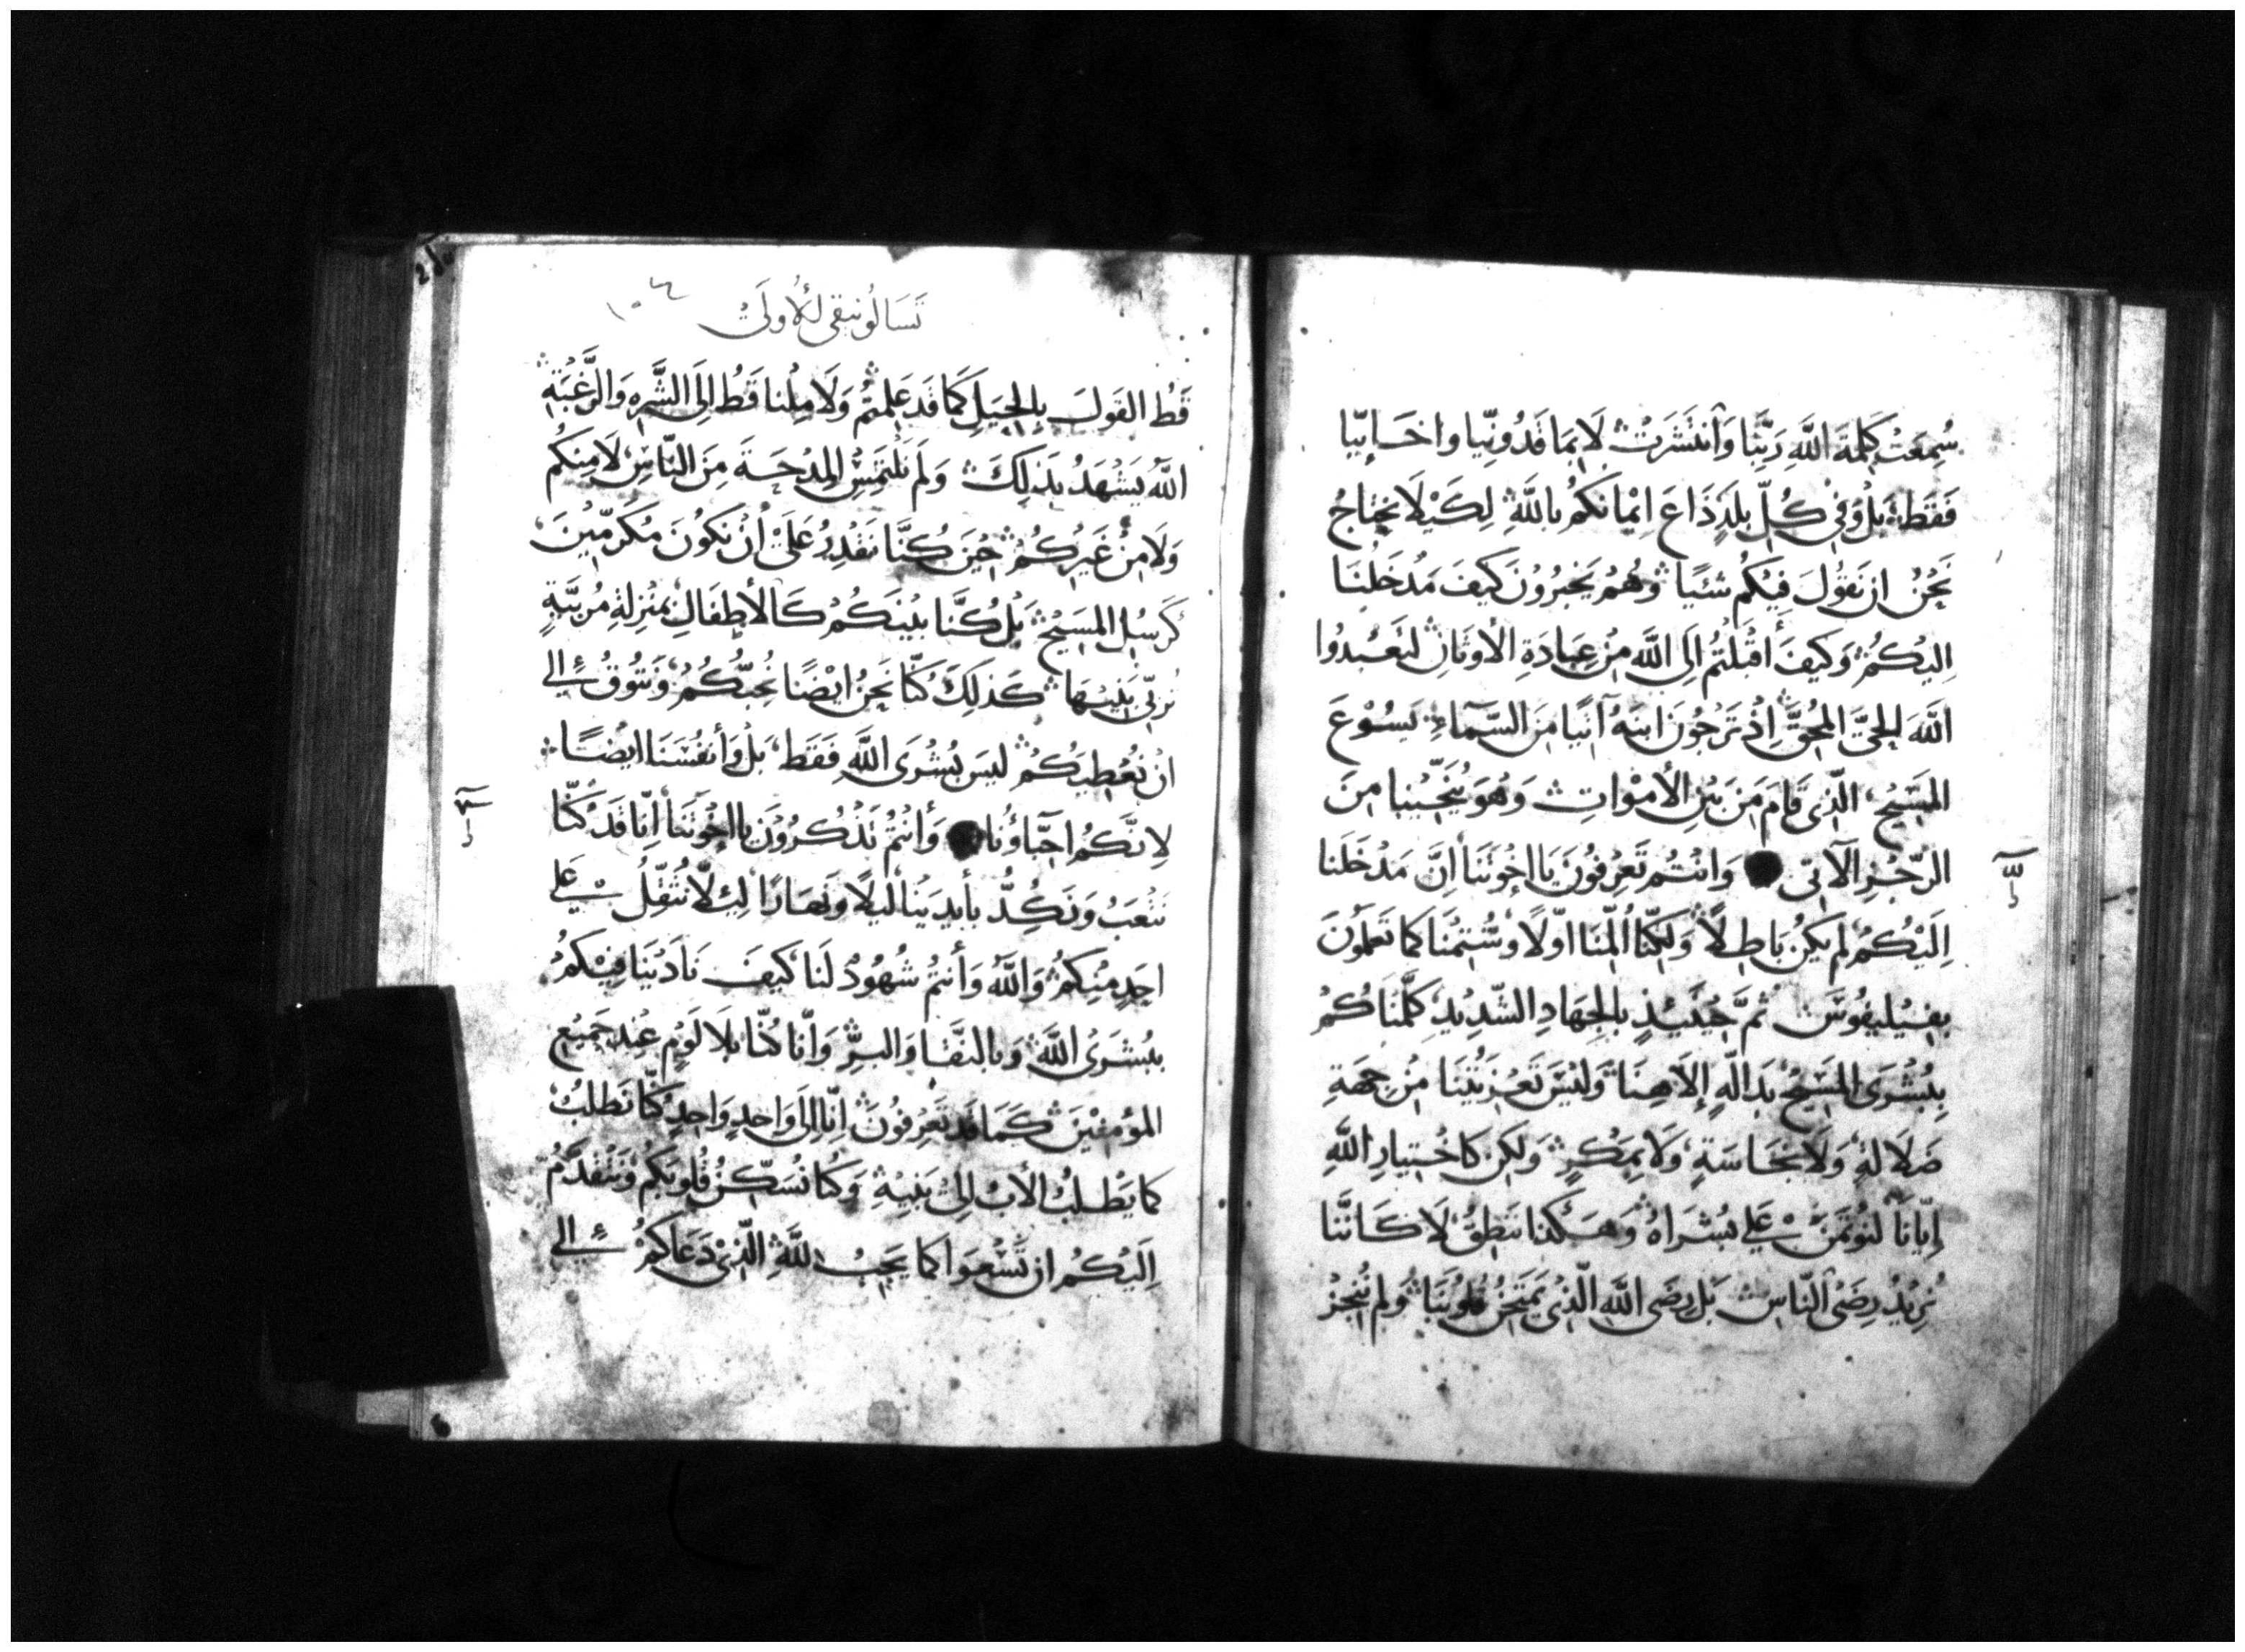 سُمِعَتْ كَلِمَةَ اللَّهِ رَبِّنَا وَأنتَشَرَتْ لَا بِمَاقَدُونِيّا واخَايِيّا
فَقَط بَلْ وَفِي كُلِّ بلَدٍ ذَاعَ اِيْمَانَكُمُ باللَّهِ لِكَيْلَا نحتاجُ
نَحْنُ ان نَقُولَ فِيْكُم شئيًا وَهُمْ يَخبِرُوْنَ كَيفَ مَدْخَلْنَا
اليْكُمْ وَكيفَ أقبَلتُمُ اِلَى اللَّه مِنْ عِبَادَةِ الأوثَانِ لتَعبُدُوا
اللَّهَ الحِيَّ المُحِقَّ اِذْ تَرَجُونَ ابنَهُ آتيًا مِنَ السَّمآءِ يَسُوْعَ
المسَيِح الّذِى قَامَ مِنَ بَيْنِ الأمْوَاتِ وَهُوَ يُنَجِّيْنا مِنَ
الرّجْزِ الآتىّ وَانتُم تَعرِفُونَ يَا اِخُوتَنَا اِنَّ مَدْخَلَنا
اِلَيْكُمُ لم يَكُن بَاطِلًا وَلكِنّا اُلِمْنَا اوّلًا وشُتِمْنَا كمَا تَعلَمُونَ
بفِيْليفُوسَ ثمَّ حِيْنَيْذٍ بالجِهَادِ الشّدِيْدِ كلّمنَاكُمْ
بِبُشْرَى المسَيْحِ بدَالّةِ إلَاهِنَا وَليْسَ تَعزِيَتُنَا مِنْ جِهَةِ
ضَلَالةٍ وَلَا نجَاسَةٍ وَلَا بمَكْرٍ وَلكِن كَاخْتِيَارِ اللَّهِ
اِيّانَا لنُؤتَمَنَ عَلي بُشرَاهُ وَهَكَذا نَنطِقُ لَا كَانَّنَا
نُرِيْدُ رِضَى النّاسِ بَل رِضَى اللَّهِ الّذِى يَمتَحِنُ قُلوبَنَا ولم نُنْجِزْ
تَسَالُونيقى الأُولَىْ
١٠٤
قَطُ القَولَ بِالحِيَلِ كَمَا قَد عَلِمتُم وَلَا مِلْنا قَطُ اِلَى الشَّرِهِ وَالرَّغْبَةِ
اللَّهُ يَشْهَدُ بذَلِكَ وَلَم نلتَمِسِ المِدْحَةَ مِنَ النّاسِ لَا مِنكُم
وَلَا مِنْ غَيرِكُمْ حِيْنَ كُنَّا نَقدِرُ عَلَى أنْ نَكُونَ مُكَرمّيْنَ
كَرُسُلِ المسَيْحِ بَلْ كُنَّا بيْنَكُمْ كَالأطفَالِ بمنْزِلةِ مُربّيَةٍ
تُربّى بَنِيْهَا كَذلِكَ كنّا نَحنُ ايْضًا نُحِبُّكُمْ وَنَتُوقُ الي
ان نُعْطِيَكُمْ ليَسَ بُشْرَى اللَّهِ فَقَط بَلْ وَأنفُسَنَا ايْضًا
لِانَّكُم احِبّاؤُنا وَأنْتُمْ تَذْكُرُوْنَ يا اخْوتَنَا اِنّا قَدْ كنّا
نَتْعَبُ وَنَكِدُّ بأيدِيْنا ليلًا وَنَهارًا لئِلّا نُثَقِّلُ عَلي
احَدٍ مِنكُم وَاللَّهُ وَأنتُم شُهُودٌ لَنَا كَيفَ نَادَيْنَا فِيْكُمُ
ببُشرَىَ اللَّه وَبالنقَا وَالبرِّ وَانّا كنّا بلَا لَوْمٍ عِند جَمِيْعِ
المؤمِنْيْنَ كَمَا قَد تَعَرِفُونَ اِنّا اِلَى وَاحِدٍ وَاحِدٍ كنّا نَطلُبُ
كمَا يَطْلُبُ الأبُ اِلَىْ بَنِيْهِ وَكنّا نُسَكِّنُ قُلُوبَكُم وَنَتَقدَّمُ
اِلَيْكُمُ ان تَسْعَوا كمَا يَجِبُ للَّهِ الّذِىْ دَعَاكُمْ الي